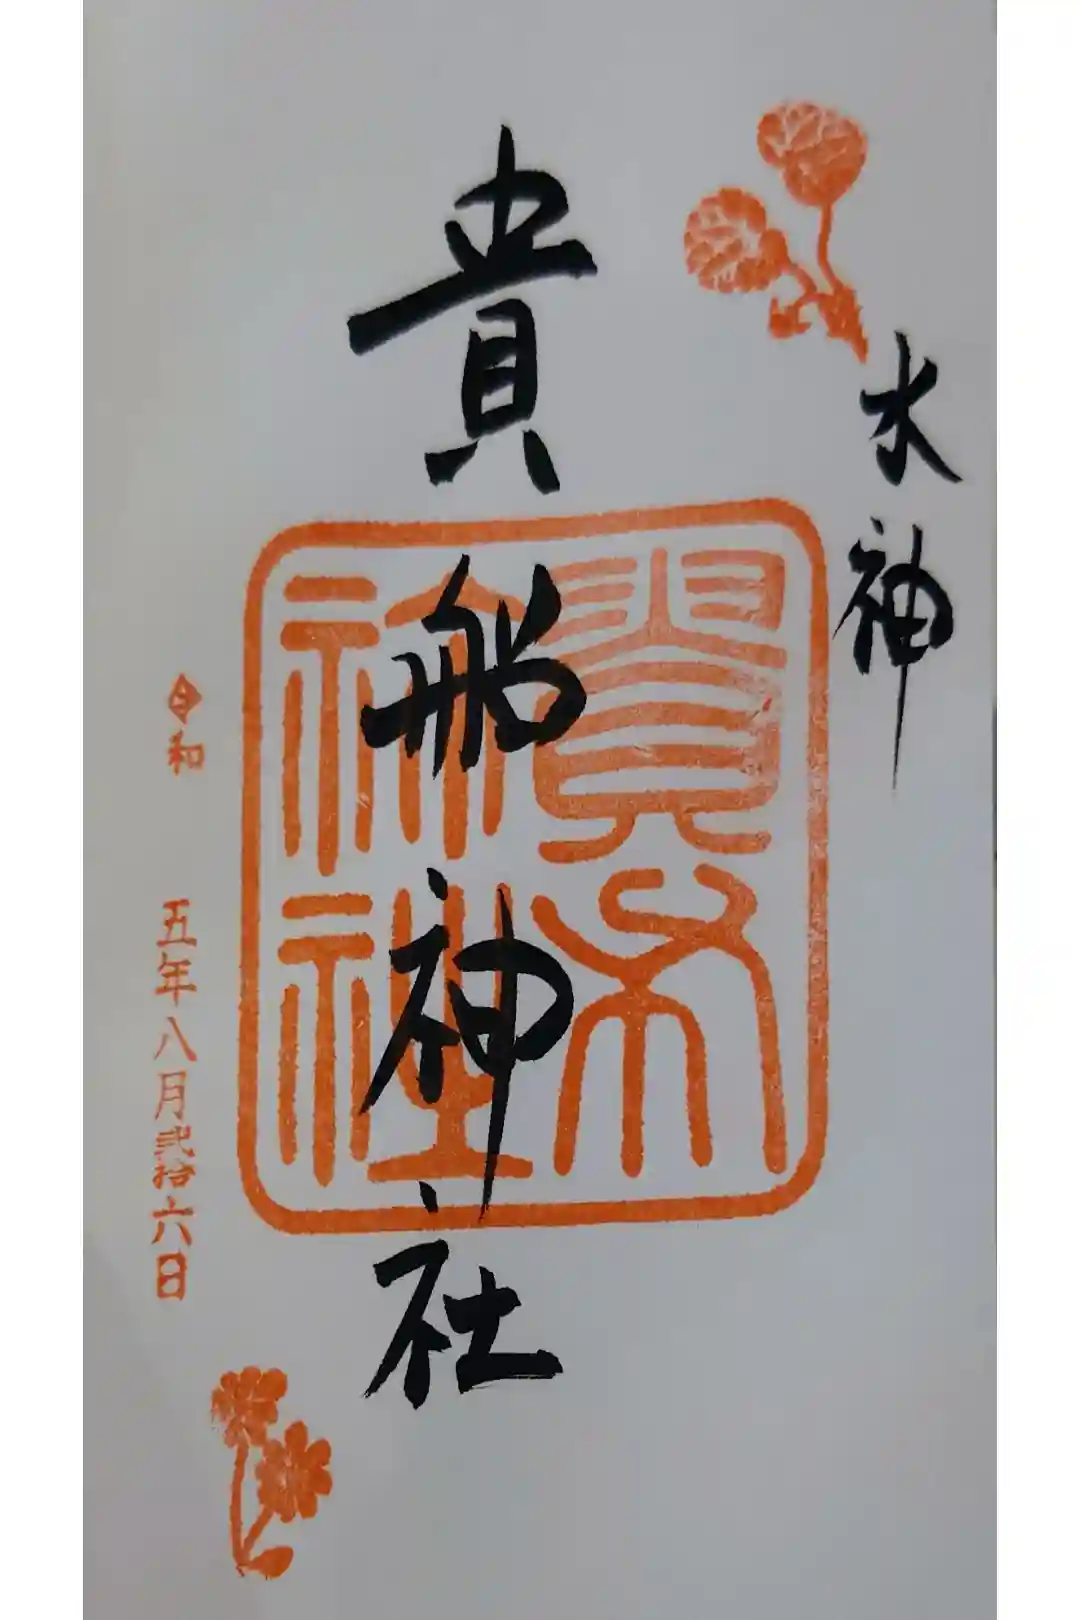 水神
貴船神社
令和 五年八月弐拾六日